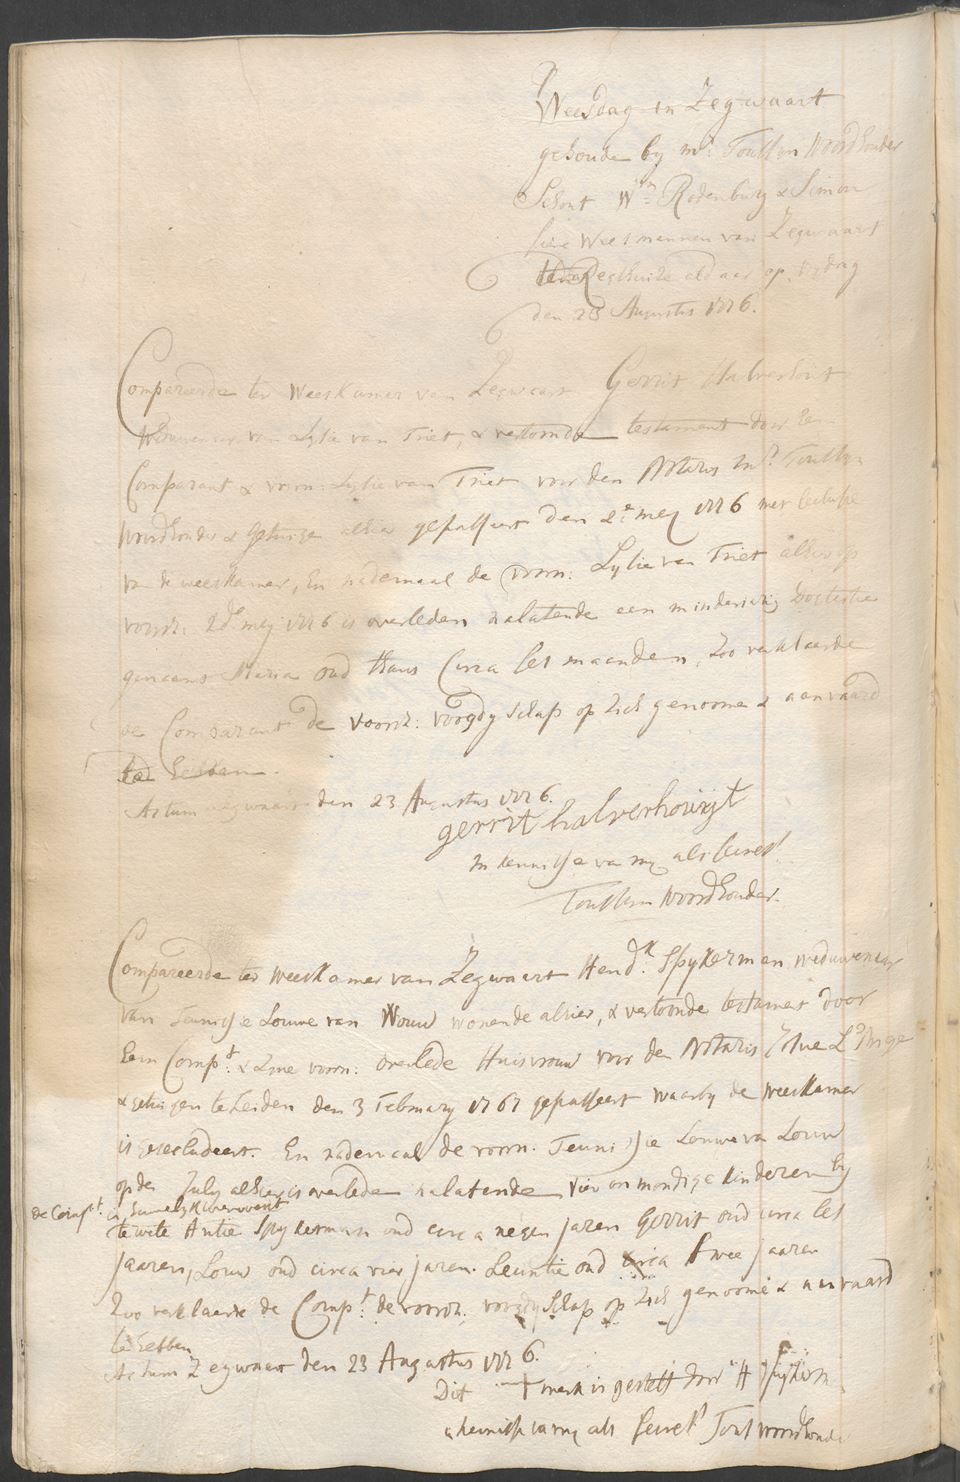 Weesdag in Zegwaart
gehoude by mr: Toussen Noordhouder
Schout Wm Rodenburg & Simon
Weesmannen van Zegwaart
Regthuise aldaar op
den 23 Augustus 1776.
Compareerde ter Weeskamer van Zegwaart Gerrit Halverhout
Weduwenaar van Lytie van Triet, & vertoonde testament door den
Comparant & voorn: Lytie van Triet voor den Notaris
Noordhouder & getuige alhier gepasseert den 2e mey 1776 met seclusie
van de weeskamer, En nademaal de voorn: Lytie van Triet alhier op
voorsz: mey 1776 is overleden nalatende een minderjarig dogtertie
genaamt Maria oud thans Circa ses maanden, Zoo verklaarde
de Comparant de voorsz: voogdyschap op zich genoome & aanvaard
te hebben.
Actum Zegwaart den 23 Augustus 1776.
gerrit halverhouwt
In kennisse van my als secrets.
Noordhouder.
Compareerde ter weeskamer van Zegwaart Hendk. Spykerman, weduwenaar
van Teunisje Louwe van Wouw wonende alhier, & vertoonde testament door
hem Compt. & zyne voorn: overlede Huisvrouw voor den Notaris
& getuigen te Leiden den 3 February 1767 gepasseert waarby de weeskamer
is gesecludeert. En nademaal de voorn. Teunisje Louwe van Louw
op den July alhier is overleden nalatende vier onmondige kinderen by
de Compt. in huwelyk verwekt
te wete Antie Spykerman oud circa negen jaren Gerrit oud circa ses
jaaren, Louw oud circa vier jaren. Leuntie oud circa twee jaaren
Zoo verklaarde de Compt. de voorsz. voogdyschap op zich genoome & aanvaard
te hebben
Actum Zegwaart den 23 Augustus 1776.
Dit + merk is gestelt door H Spykerm
in kennisse van my als secrets Noordhouder